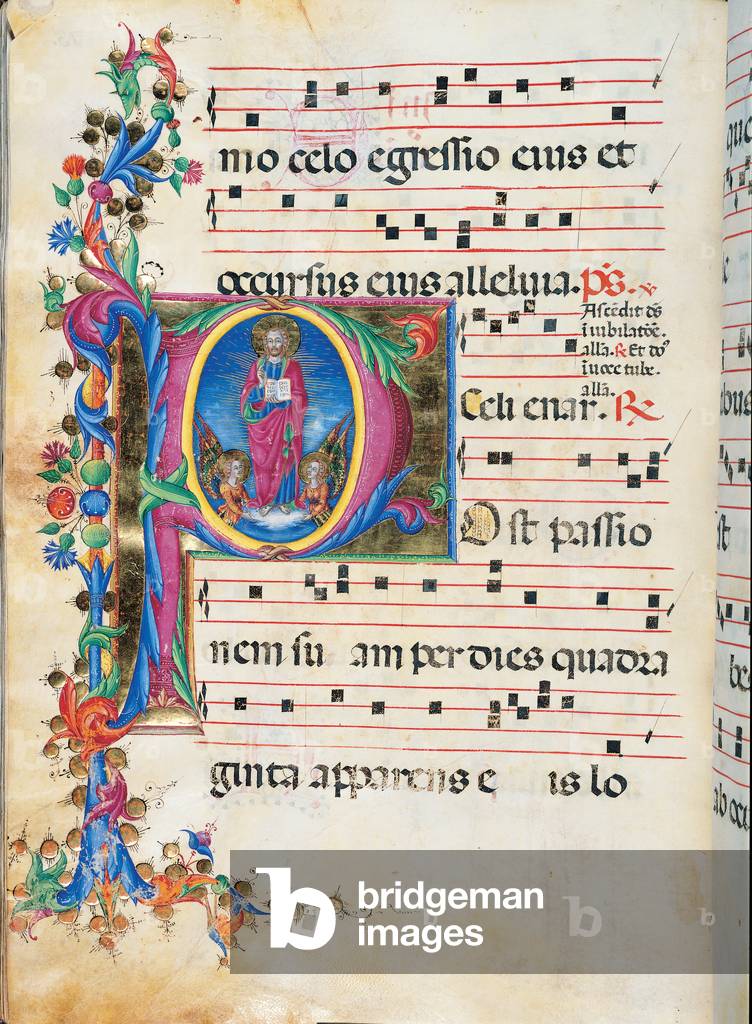 mo celo egressio eius et
occursus eius alleluia. ps. v
Ascēdit dš
ī iubilatōe.
alla. R Et dō
ī uoce tube.
alla.
Celi enar. R
Post passio
nem su am per dies quadra
ginta apparens e is lo
bridgeman
images